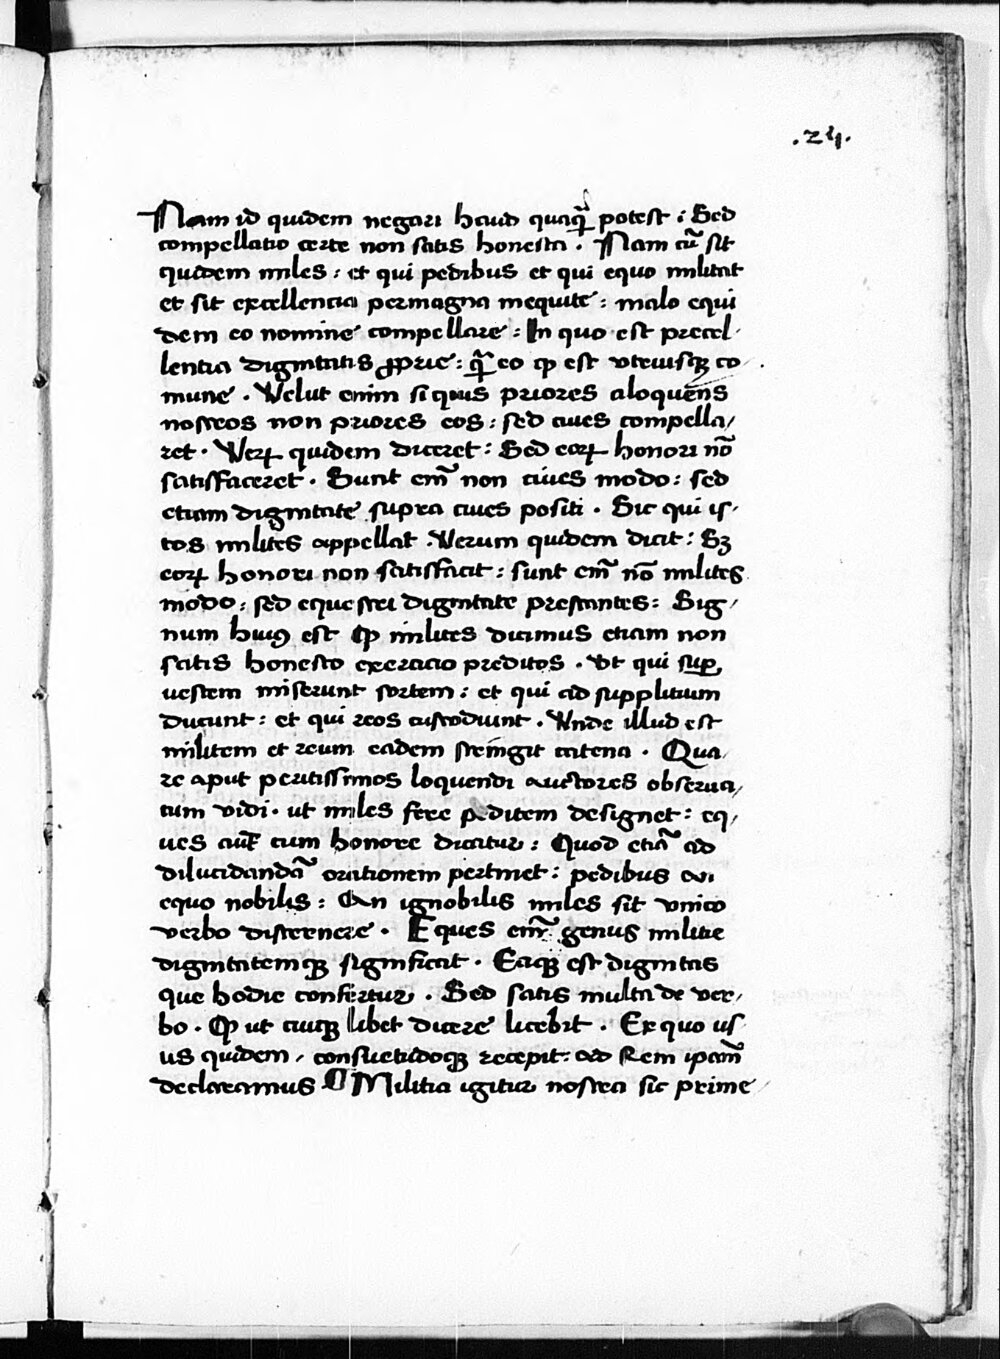 .24.
Nam id quidem negari haud quaqꝫ̃ potest : Sed
compellatio certe non satis honesta . Nam cũ sit
quidem miles : et qui pedibus et qui equo militat
et sit excellencia permagna in equite : malo equi
dem eo nomine compellare : In quo est precel-
lentia dignitatis ꝓprie : qꝫ̃ eo qꝫ est vtriusqꝫ co-
mune . Velut enim si quis priores aloquens
nostros non priores eos : sed ciues compella/
ret . Veꝝ quidem diceret : Sed eoꝝ honori nõ
satisfaceret . Sunt em̃ non ciues modo : sed
etiam dignitate supra ciues positi . Sic qui is-
tos milites appellat . Verum quidem dicit : Sꝫ
eoꝝ honori non satisfacit : sunt em̃ nõ milites
modo : sed equestri dignitate prestantes : Sig/
num huiꝰ est ꝙ milites dicimus etiam non
satis honesto exercicio preditos . Vt qui suꝑ
uestem miserunt sortem : et qui ad supplitium
ducunt : et qui reos custodiunt . Unde illud est
militem et reum eadem stringit catena . Qua/
re aput peritissimos loquendi auctores obserua/
tum vidi . ut miles fere peditem designet : eq/
ues aut̃ cum honore dicatur : Quod etiã ad
dilucidandã orationem pertinet : pedibus an
equo nobilis : An ignobilis miles sit vnico
verbo discernere . Eques em̃ genus militie
dignitatemqꝫ significat . Eaqꝫ est dignitas
que hodie confertur . Sed satis multa de ver/
bo . ꝙ ut cuiqꝫ libet dicere licebit . Ex quo us
us quidem / consuetudoqꝫ recepit : ad Rem ipam̃
declaramus . Militia igitur nostra sic prime